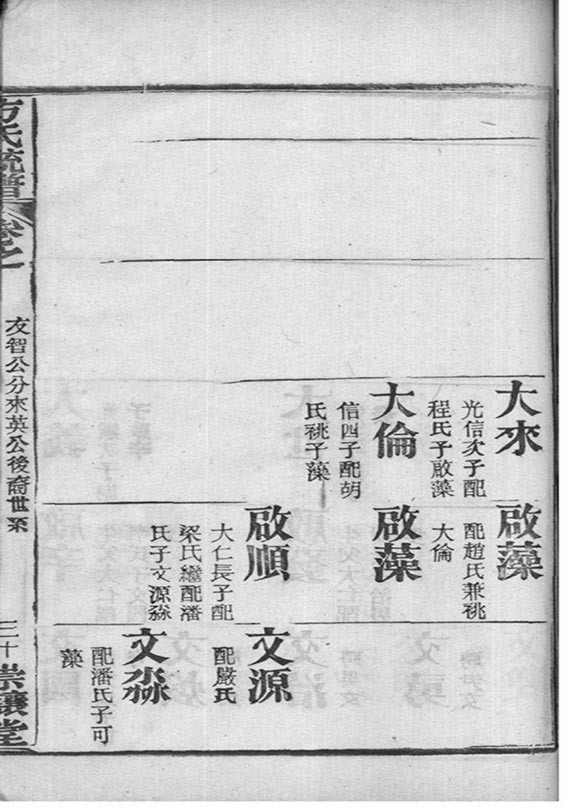 大來
光信次子配
程氏子啟藻
大倫
信四子配胡
氏祧子藻
啟藻
配趙氏兼祧
大倫
啟藻
啟順
大仁長子配
梁氏繼配潘
氏子文源淼
文源
配嚴氏
文淼
配潘氏子可
藻
方氏統譜
卷之
友智公分來英公後裔世系
三十
崇讓堂